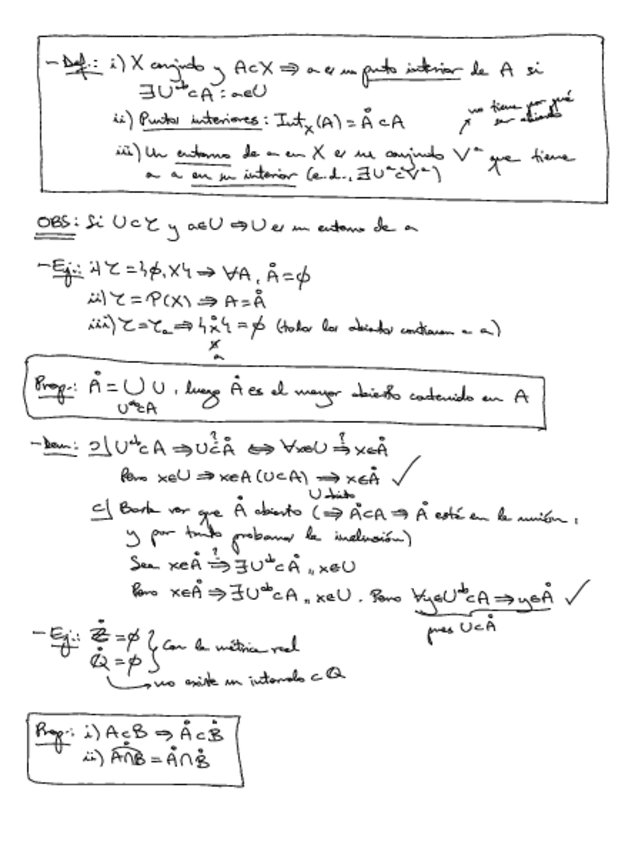 - Def.: i) X conjunto y A⊂X ⇒ a es un punto interior de A si
∃U^ab⊂A : a∈U
ii) Puntos interiores: Int_X(A) = Å ⊂ A
no tiene por qué
ser abierto
iii) Un entorno de a en X es un conjunto V^a que tiene
a a en su interior (e.d., ∃U^a⊂V^a)
OBS: Si U⊂τ y a∈U ⇒ U es un entorno de a
- Ej.: i) τ = {∅, X} ⇒ ∀A, Å = ∅
ii) τ = P(X) ⇒ A = Å
iii) τ = τ_a ⇒ {x̊} = ∅ (todos los abiertos contienen a a)
x
a
Prop.: Å = ∪ U, luego Å es el mayor abierto contenido en A
U^ab⊂A
- Dem: ⊃| U^ab⊂A ⇒ U ⊂? Å ⇔ ∀x∈U ⇒? x∈Å
Pero x∈U ⇒ x∈A (U⊂A) ⇒ x∈Å ✓
U abierto
⊂| Basta ver que Å abierto (⇒ Å⊂A ⇒ Å está en la unión,
y por tanto probamos la inclusión)
Sea x∈Å ⇒? ∃U^ab⊂Å,, x∈U
Pero x∈Å ⇒ ∃U^ab⊂A,, x∈U. Pero ∀y∈U^ab⊂A ⇒ y∈Å ✓
pues U⊂Å
- Ej.: Z̊ = ∅ } con la métrica real
Q̊ = ∅
no existe un intervalo ⊂ Q
Prop.: i) A⊂B ⇒ Å⊂B̊
ii) (A∩B)° = Å∩B̊